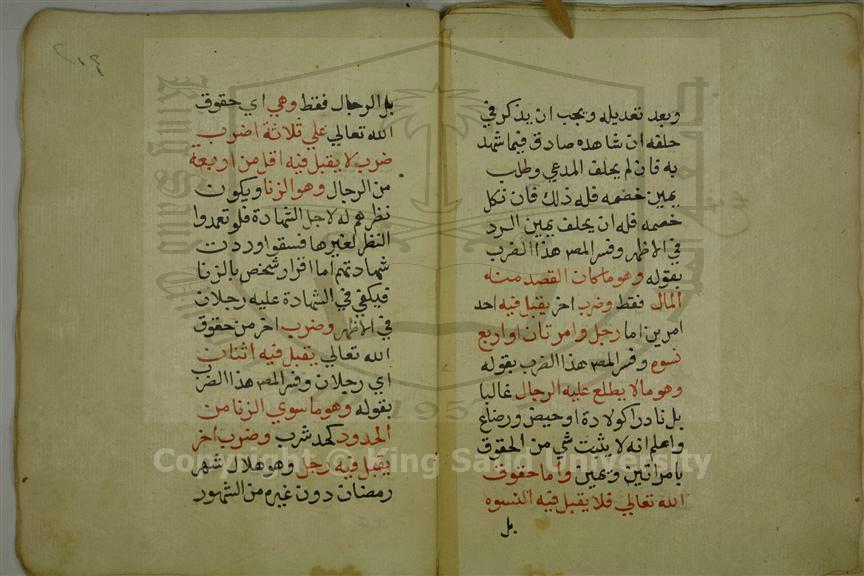 وبعد تعديله ويجب ان يذكر في
حلفه ان شاهده صادق فيما شهد
به فان لم يحلف المدعي وطلب
يمين خصمه فله ذلك فان نكل
خصمه فله ان يحلف يمين الرد
في الاظهر وفسر المصـ هذا الضرب
بقوله وهو ما كان القصد منه
المال فقط وضرب اخر يقبل فيه احد
امرين اما رجل وامرتان او اربع
نسوه وفسر المصـ هذا الضرب بقوله
وهو مالا يطلع عليه الرجال غالبا
بل نادرا كولادة او حيض ورضاع
واعلم انه لا يثبت شي من الحقوق
بامراتين ويمين واما حقوق
الله تعالي فلا يقبل فيه النسوه
بل
٢١٤
بل الرجال فقط وهي اي حقوق
الله تعالي علي ثلاثة اضرب
ضرب لا يقبل فيه اقل من اربعة
من الرجال وهو الزنا ويكون
نظرهم له لاجل الشهادة فلو تعمدوا
النظر لغيرها فسقوا وردت
شهادتهم اما اقرار شخص بالزنا
فيكفي في الشهادة عليه رجلان
في الاظهر وضرب اخر من حقوق
الله تعالي يقبل فيه اثنان
اي رجلان وفسر المصـ هذا الضرب
بقوله وهو ما سوي الزنا من
الحدود كحد شرب وضرب اخر
يقبل فيه رجل وهو هلال شهر
رمضان دون غيره من الشهور
Copyright © King Saud University
1957